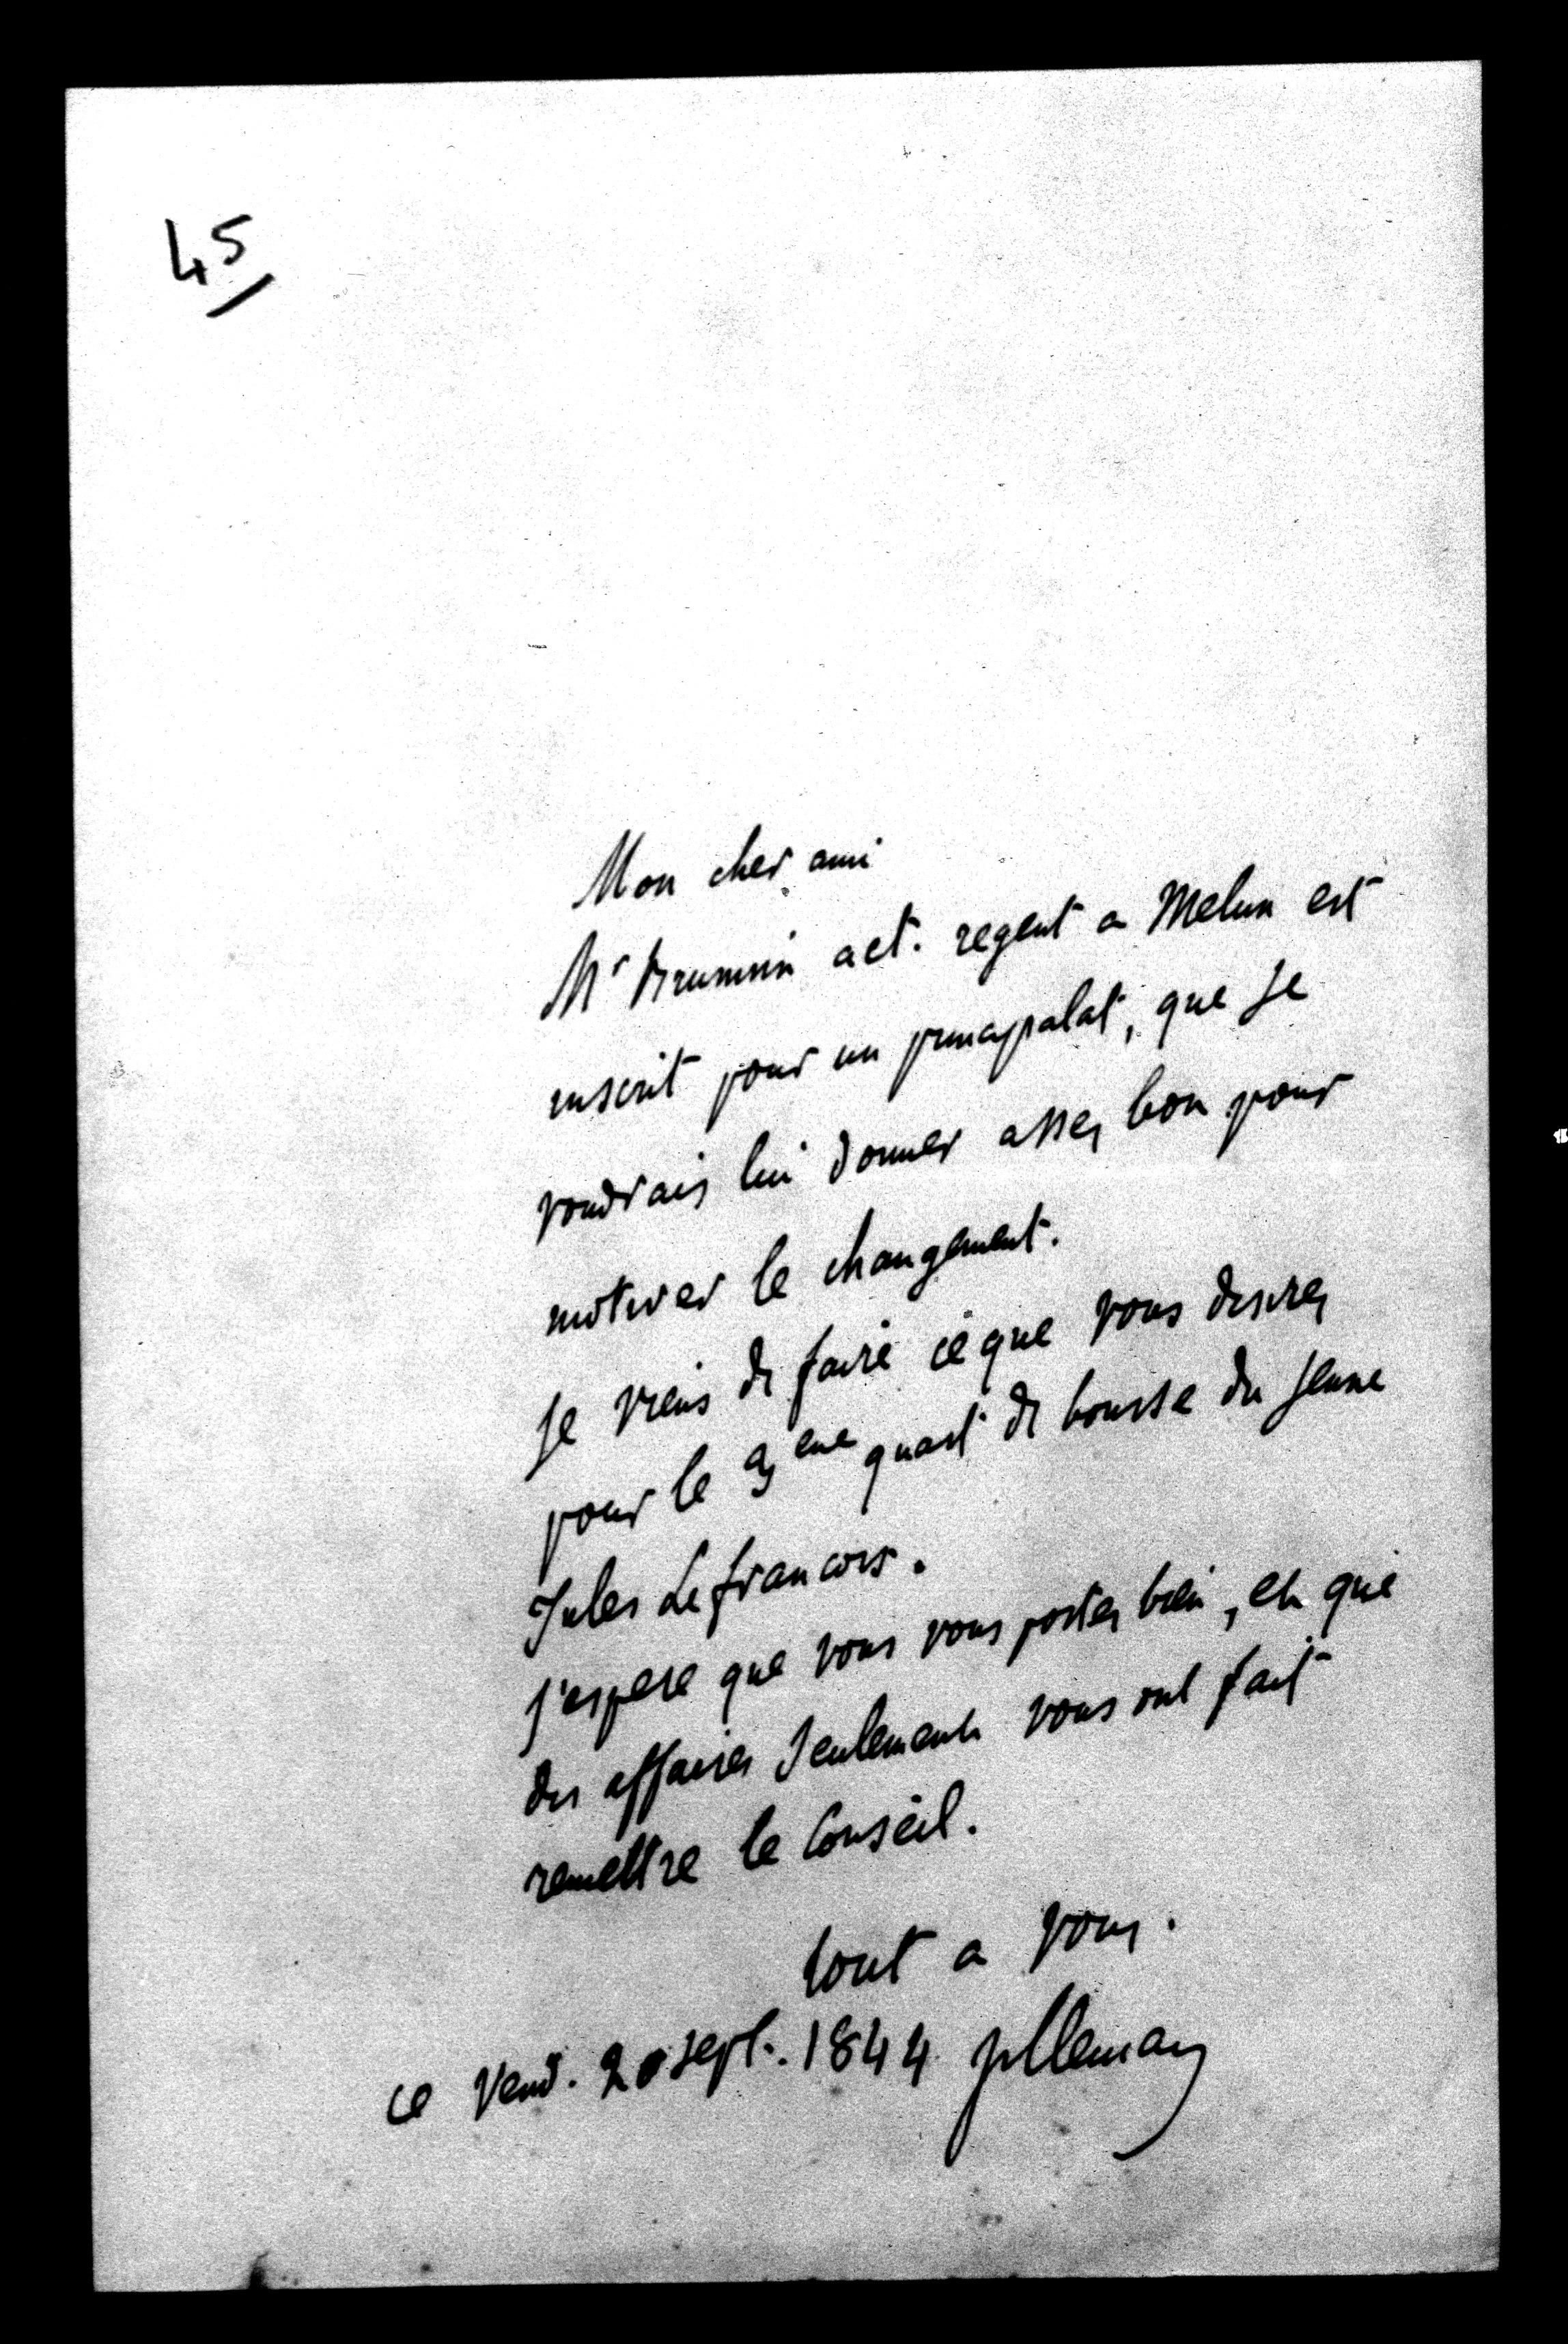 45
Mon cher ami
Mr act. regent a Melun est
inscrit pour un principalat, que je
voudrais lui donner assez bon pour
motiver le changement.
je viens de faire ce que vous desirez
pour le eme quart de bourse du jeune
Jules Lefrancois.
j'espere que vous vous portez bien, et que
des affaires seulement vous ont fait
remettre le Conseil.
tout a vous.
ce Vend. 20 sept. 1844 Villemain